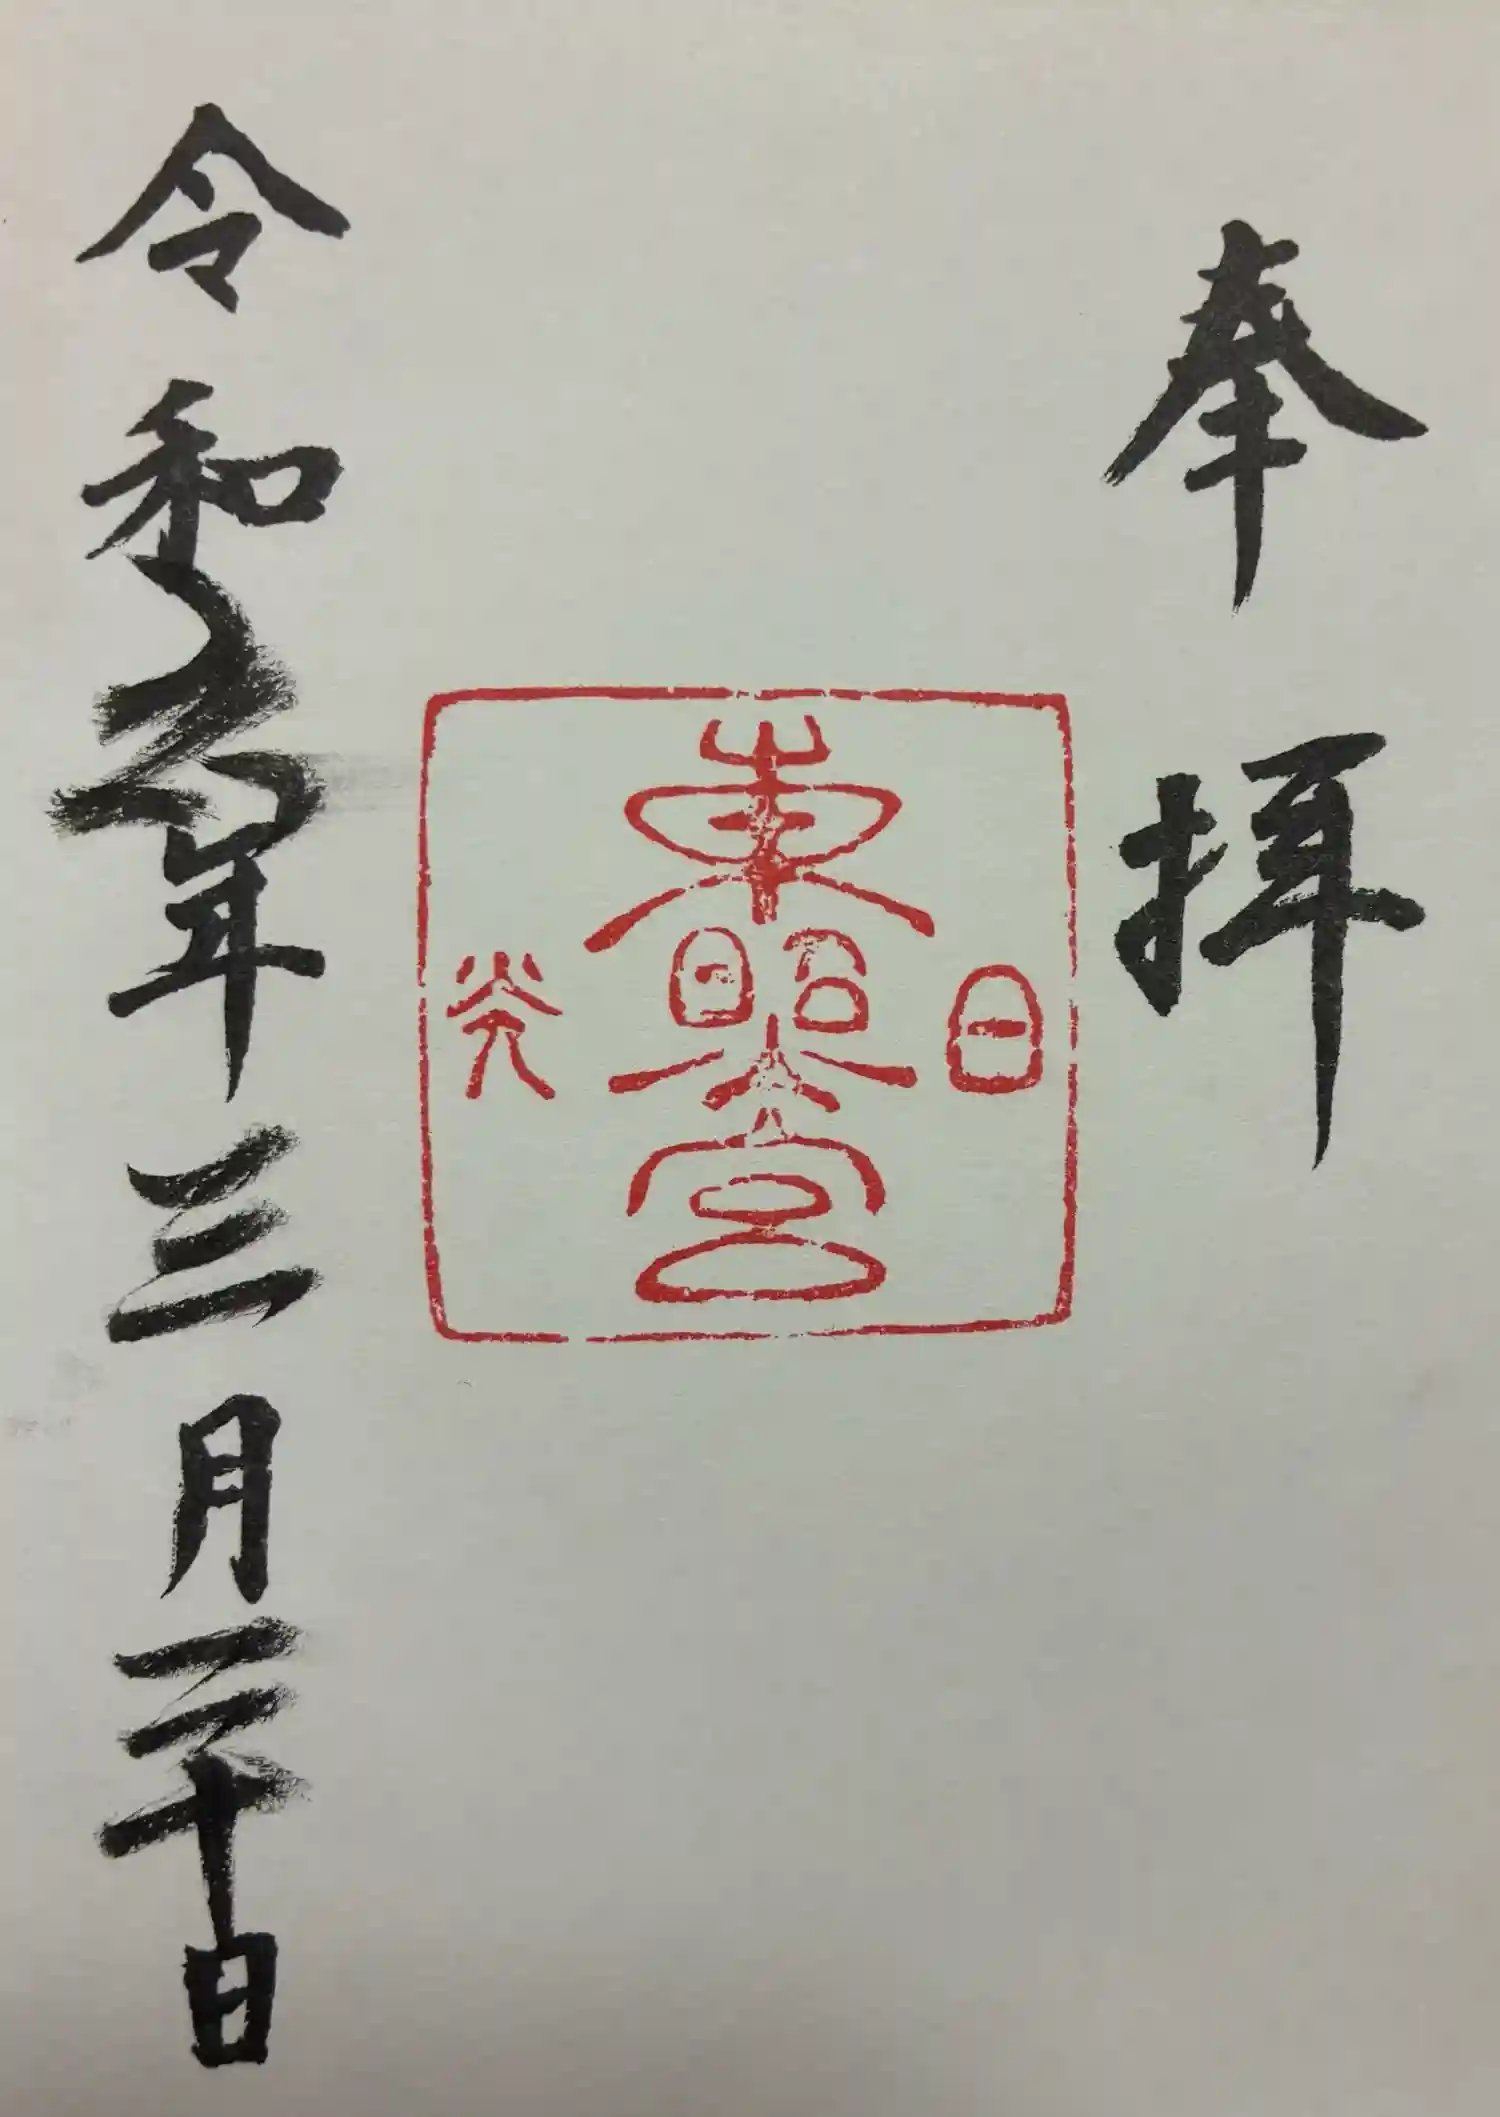 奉拝
日
東照宮
光
令和六年三月二十日